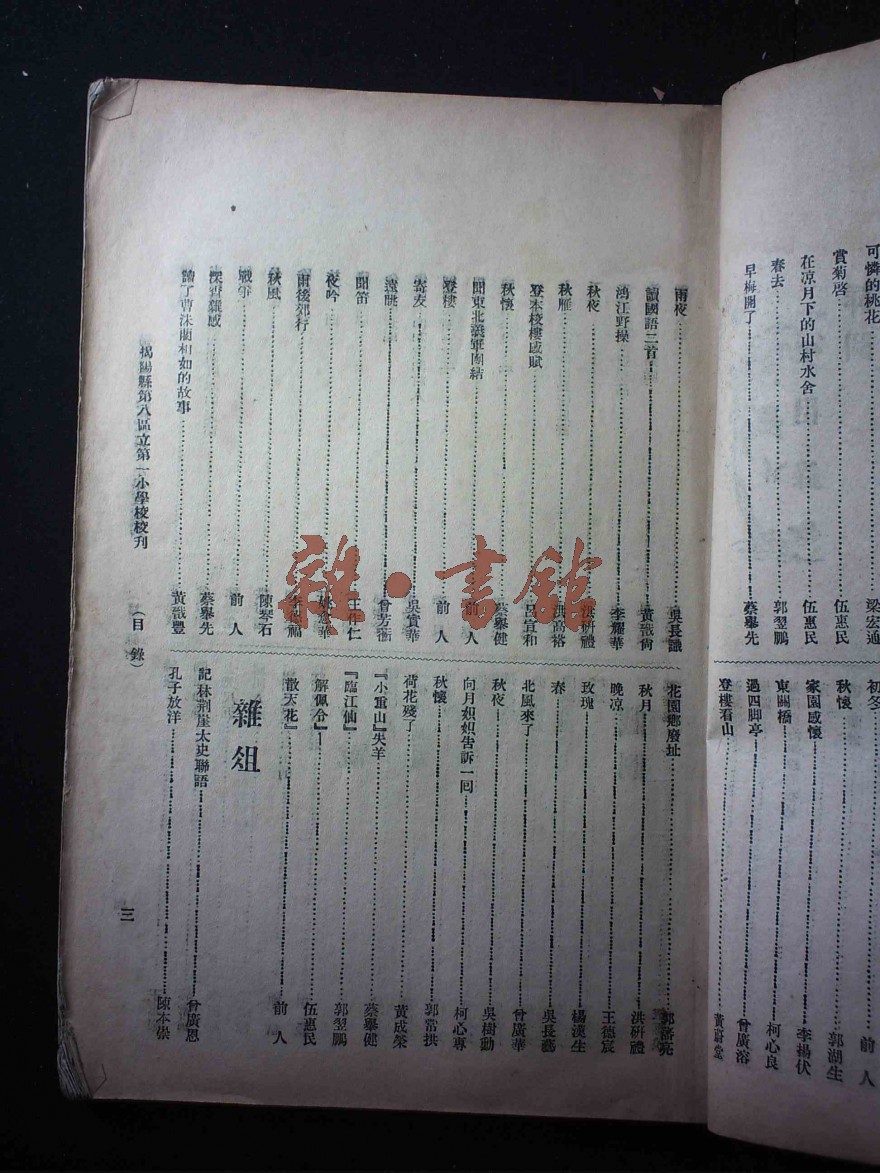 可憐的桃花 梁宏通
賞菊啓 伍惠民
在凉月下的山村水舍 伍惠民
春去 郭翌鵬
早梅開了 蔡擧先
初冬 前人
秋懷 郭湖生
家園感懷 李揚伏
東關橋 柯心良
過四脚亭 曾廣溶
登樓看山 黃蔚堂
雨夜 吳長讖
讀國語二首 黃哉尙
鴻江野操 李耀華
秋夜 洪硏禮
秋雁
登本校樓感賦 呂宜和
秋懷 蔡擧健
聞東北義軍團結 前人
登樓 前人
寄友 吳實華
遠眺 曾芳衞
聞笛 王作仁
夜吟
雨後郊行
秋風 陳琴石
戰爭 前人
深宵雜感 蔡擧先
讀了曹沫藺相如的故事 黃哉豐
花園鄉廢址
秋月 洪硏禮
晚凉 王德宸
玫瑰 楊漢生
春 吳長藝
北風來了 曾廣華
秋夜 吳樹勳
向月姐姐告訴一囘 柯心專
秋懷 郭常拱
荷花殘了 黃成榮
『小重山』失羊 蔡擧健
『臨江仙』 郭翌鵬
『解佩令』 伍惠民
『散天花』 前人
雜俎
記林荆崖太史聯語 曾廣恩
孔子放洋 陳本崇
揭陽縣第八區立第一小學校校刊 （目錄） 三
雜·書館